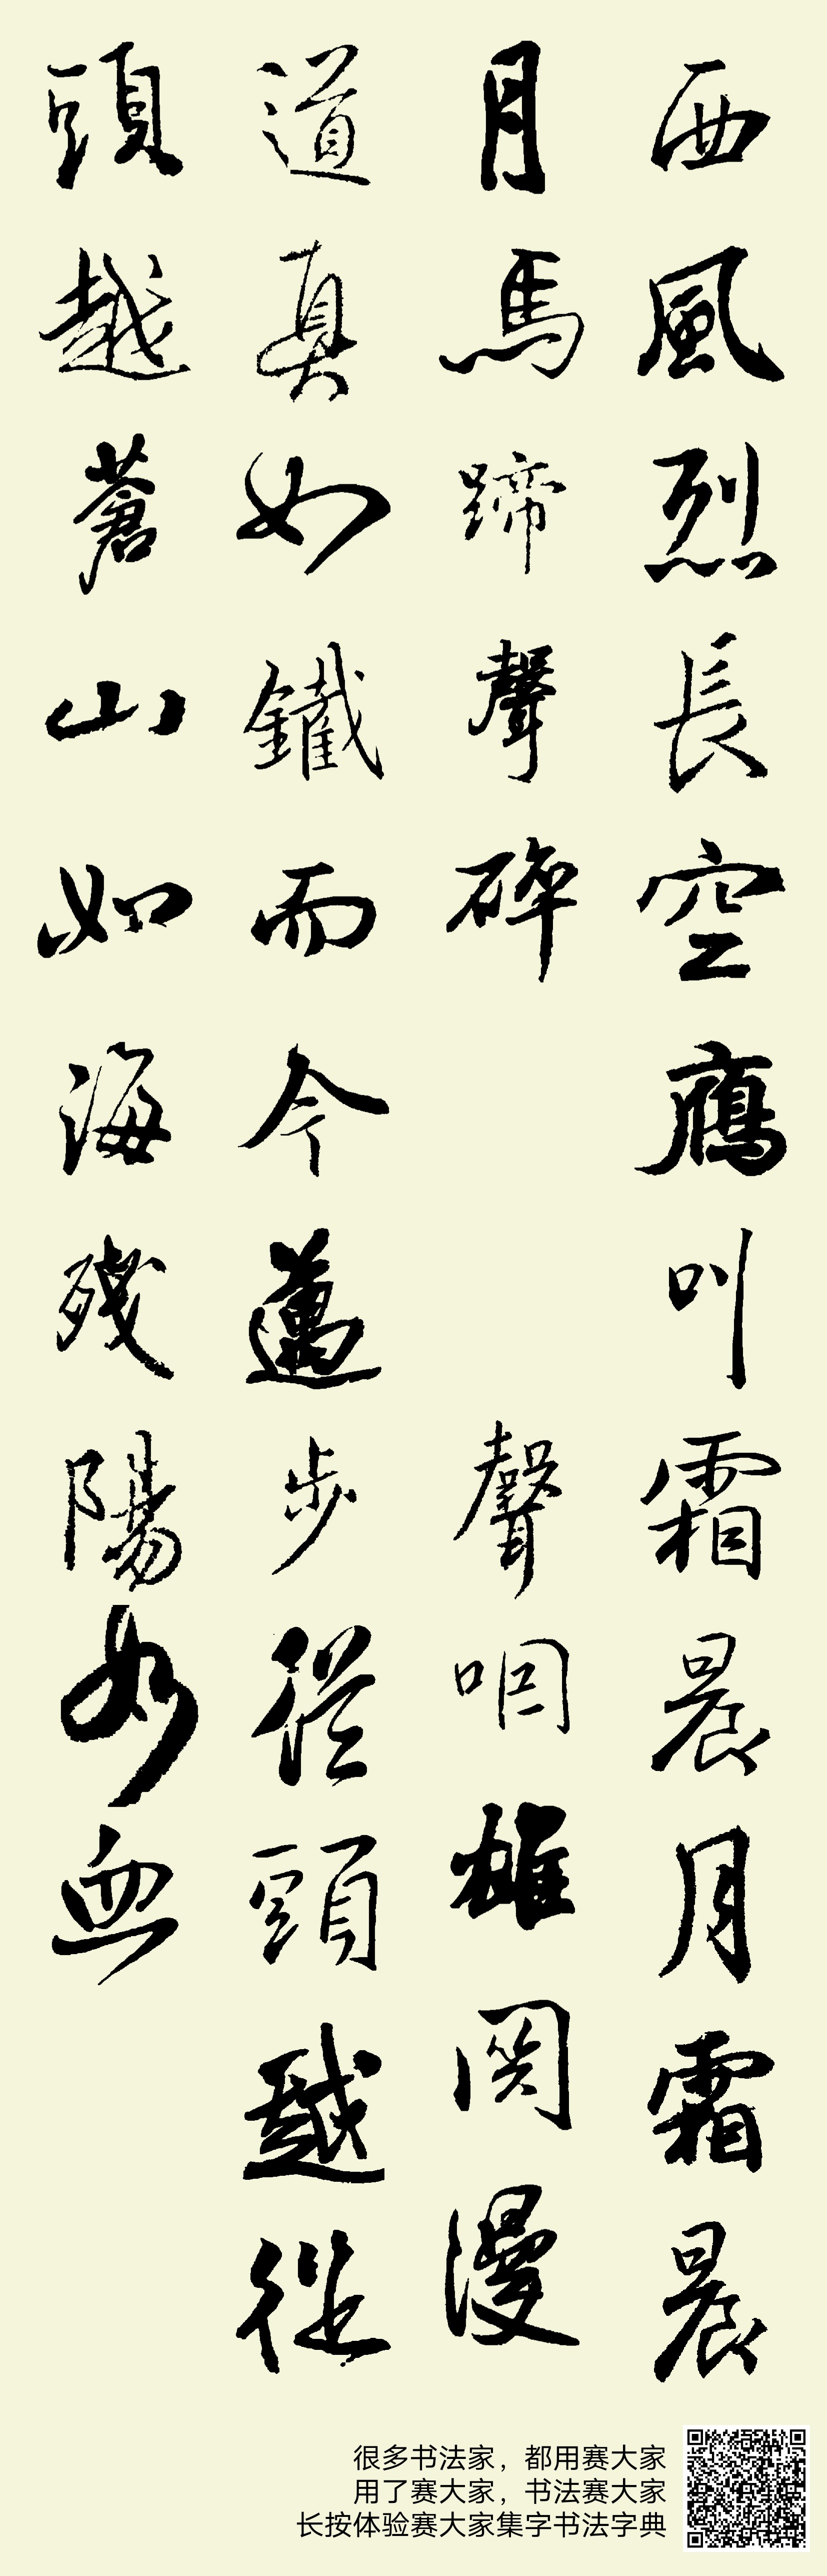 西風烈長空鴈叫霜晨月霜晨
月馬蹄聲碎 聲咽雄関漫
道真如鐵而今邁步從頭越從
頭越蒼山如海殘陽如血
很多书法家，都用赛大家
用了赛大家，书法赛大家
长按体验赛大家集字书法字典